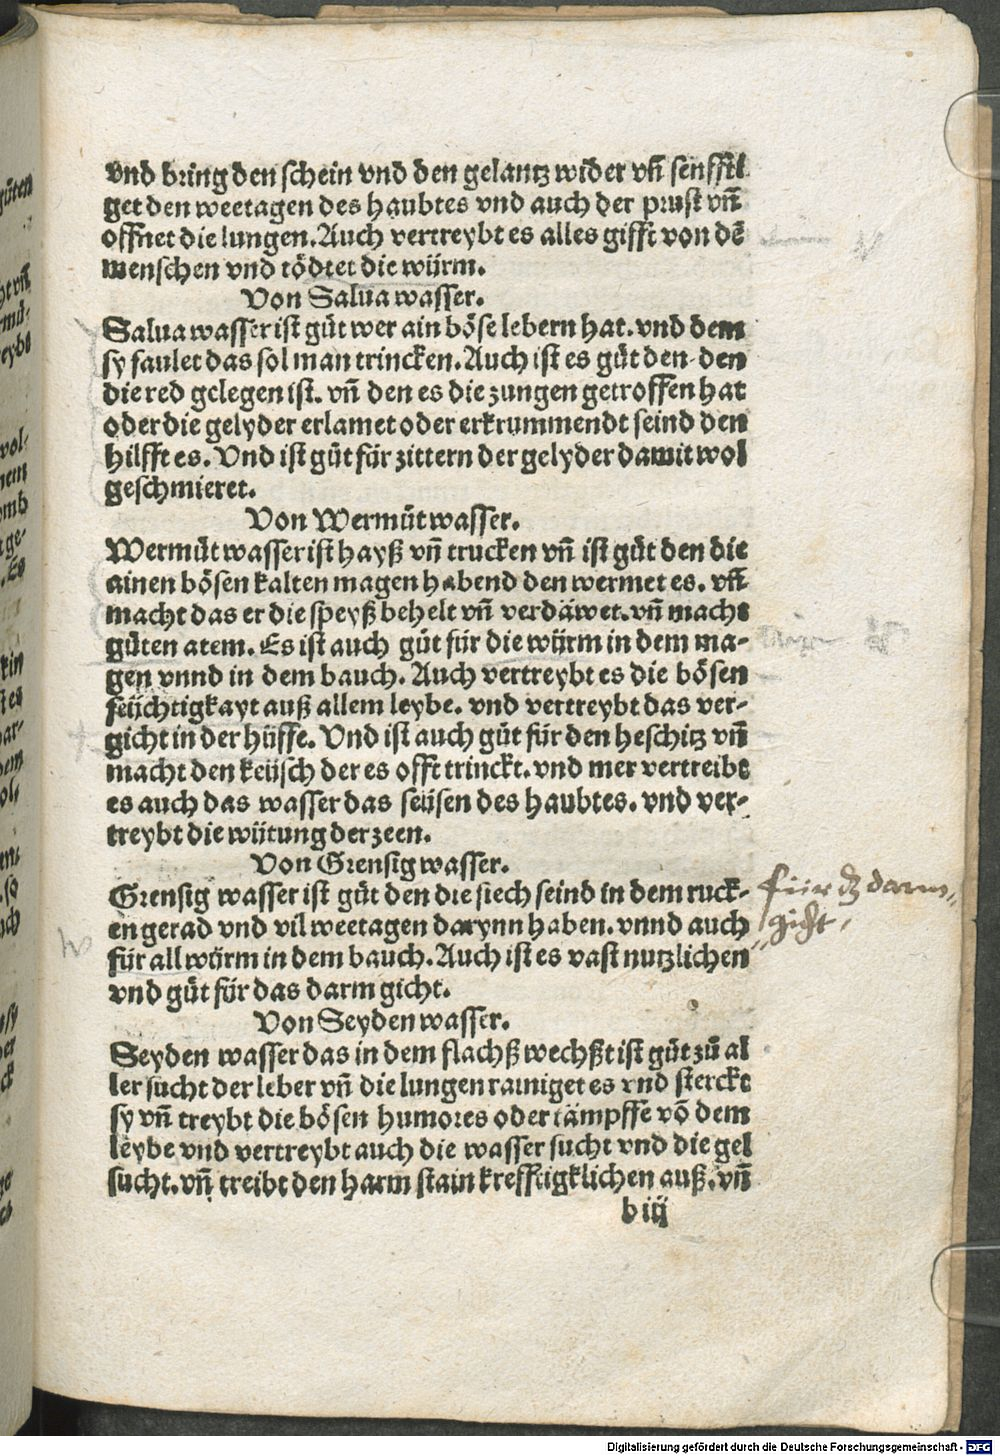 vnd bring den schein vnd den gelantz wider vñ senffti
get den weetagen des haubtes vnd auch der prust vñ
offnet die lungen. Auch vertreybt es alles gifft von dē
menschen vnd tödtet die würm.
Von Salua wasser.
Salua wasser ist gůt wer ain böse lebern hat. vnd dem
sy faulet das sol man trincken. Auch ist es gůt den den
die red gelegen ist. vñ den es die zungen getroffen hat
oder die gelyder erlamet oder erkrummendt seind den
hilfft es. Vnd ist gůt für zittern der gelyder damit wol
geschmieret.
Von Wermůt wasser.
Wermůt wasser ist hayß vñ trucken vñ ist gůt den die
ainen bösen kalten magen habend den wermet es. vñ
macht das er die speyß behelt vñ verdäwet. vñ macht
gůten atem. Es ist auch gůt für die würm in dem ma-
gen vnnd in dem bauch. Auch vertreybt es die bösen
feüchtigkayt auß allem leybe. vnd vertreybt das ver-
gicht in der hüffe. Vnd ist auch gůt für den heschitz vñ
macht den keüsch der es offt trinckt. vnd mer vertreibt
es auch das wasser das seüsen des haubtes. vnd ver-
treybt die wütung der zeen.
Von Grensig wasser.
Grensig wasser ist gůt den die siech seind in dem ruck-
en gerad vnd vil weetagen darynn haben. vnnd auch
für all würm in dem bauch. Auch ist es vast nutzlichen
vnd gůt für das darm gicht.
für dz darm
gicht
Von Seyden wasser.
Seyden wasser das in dem flachß wechßt ist gůt zů al
ler sucht der leber vñ die lungen rainiget es vnd sterckt
sy vñ treybt die bösen humores oder tämpffe vō dem
leybe vnd vertreybt auch die wasser sucht vnd die gel
sucht. vñ treibt den harm stain krefftigklichen auß. vñ
b iij
Digitalisierung gefördert durch die Deutsche Forschungsgemeinschaft - DFG